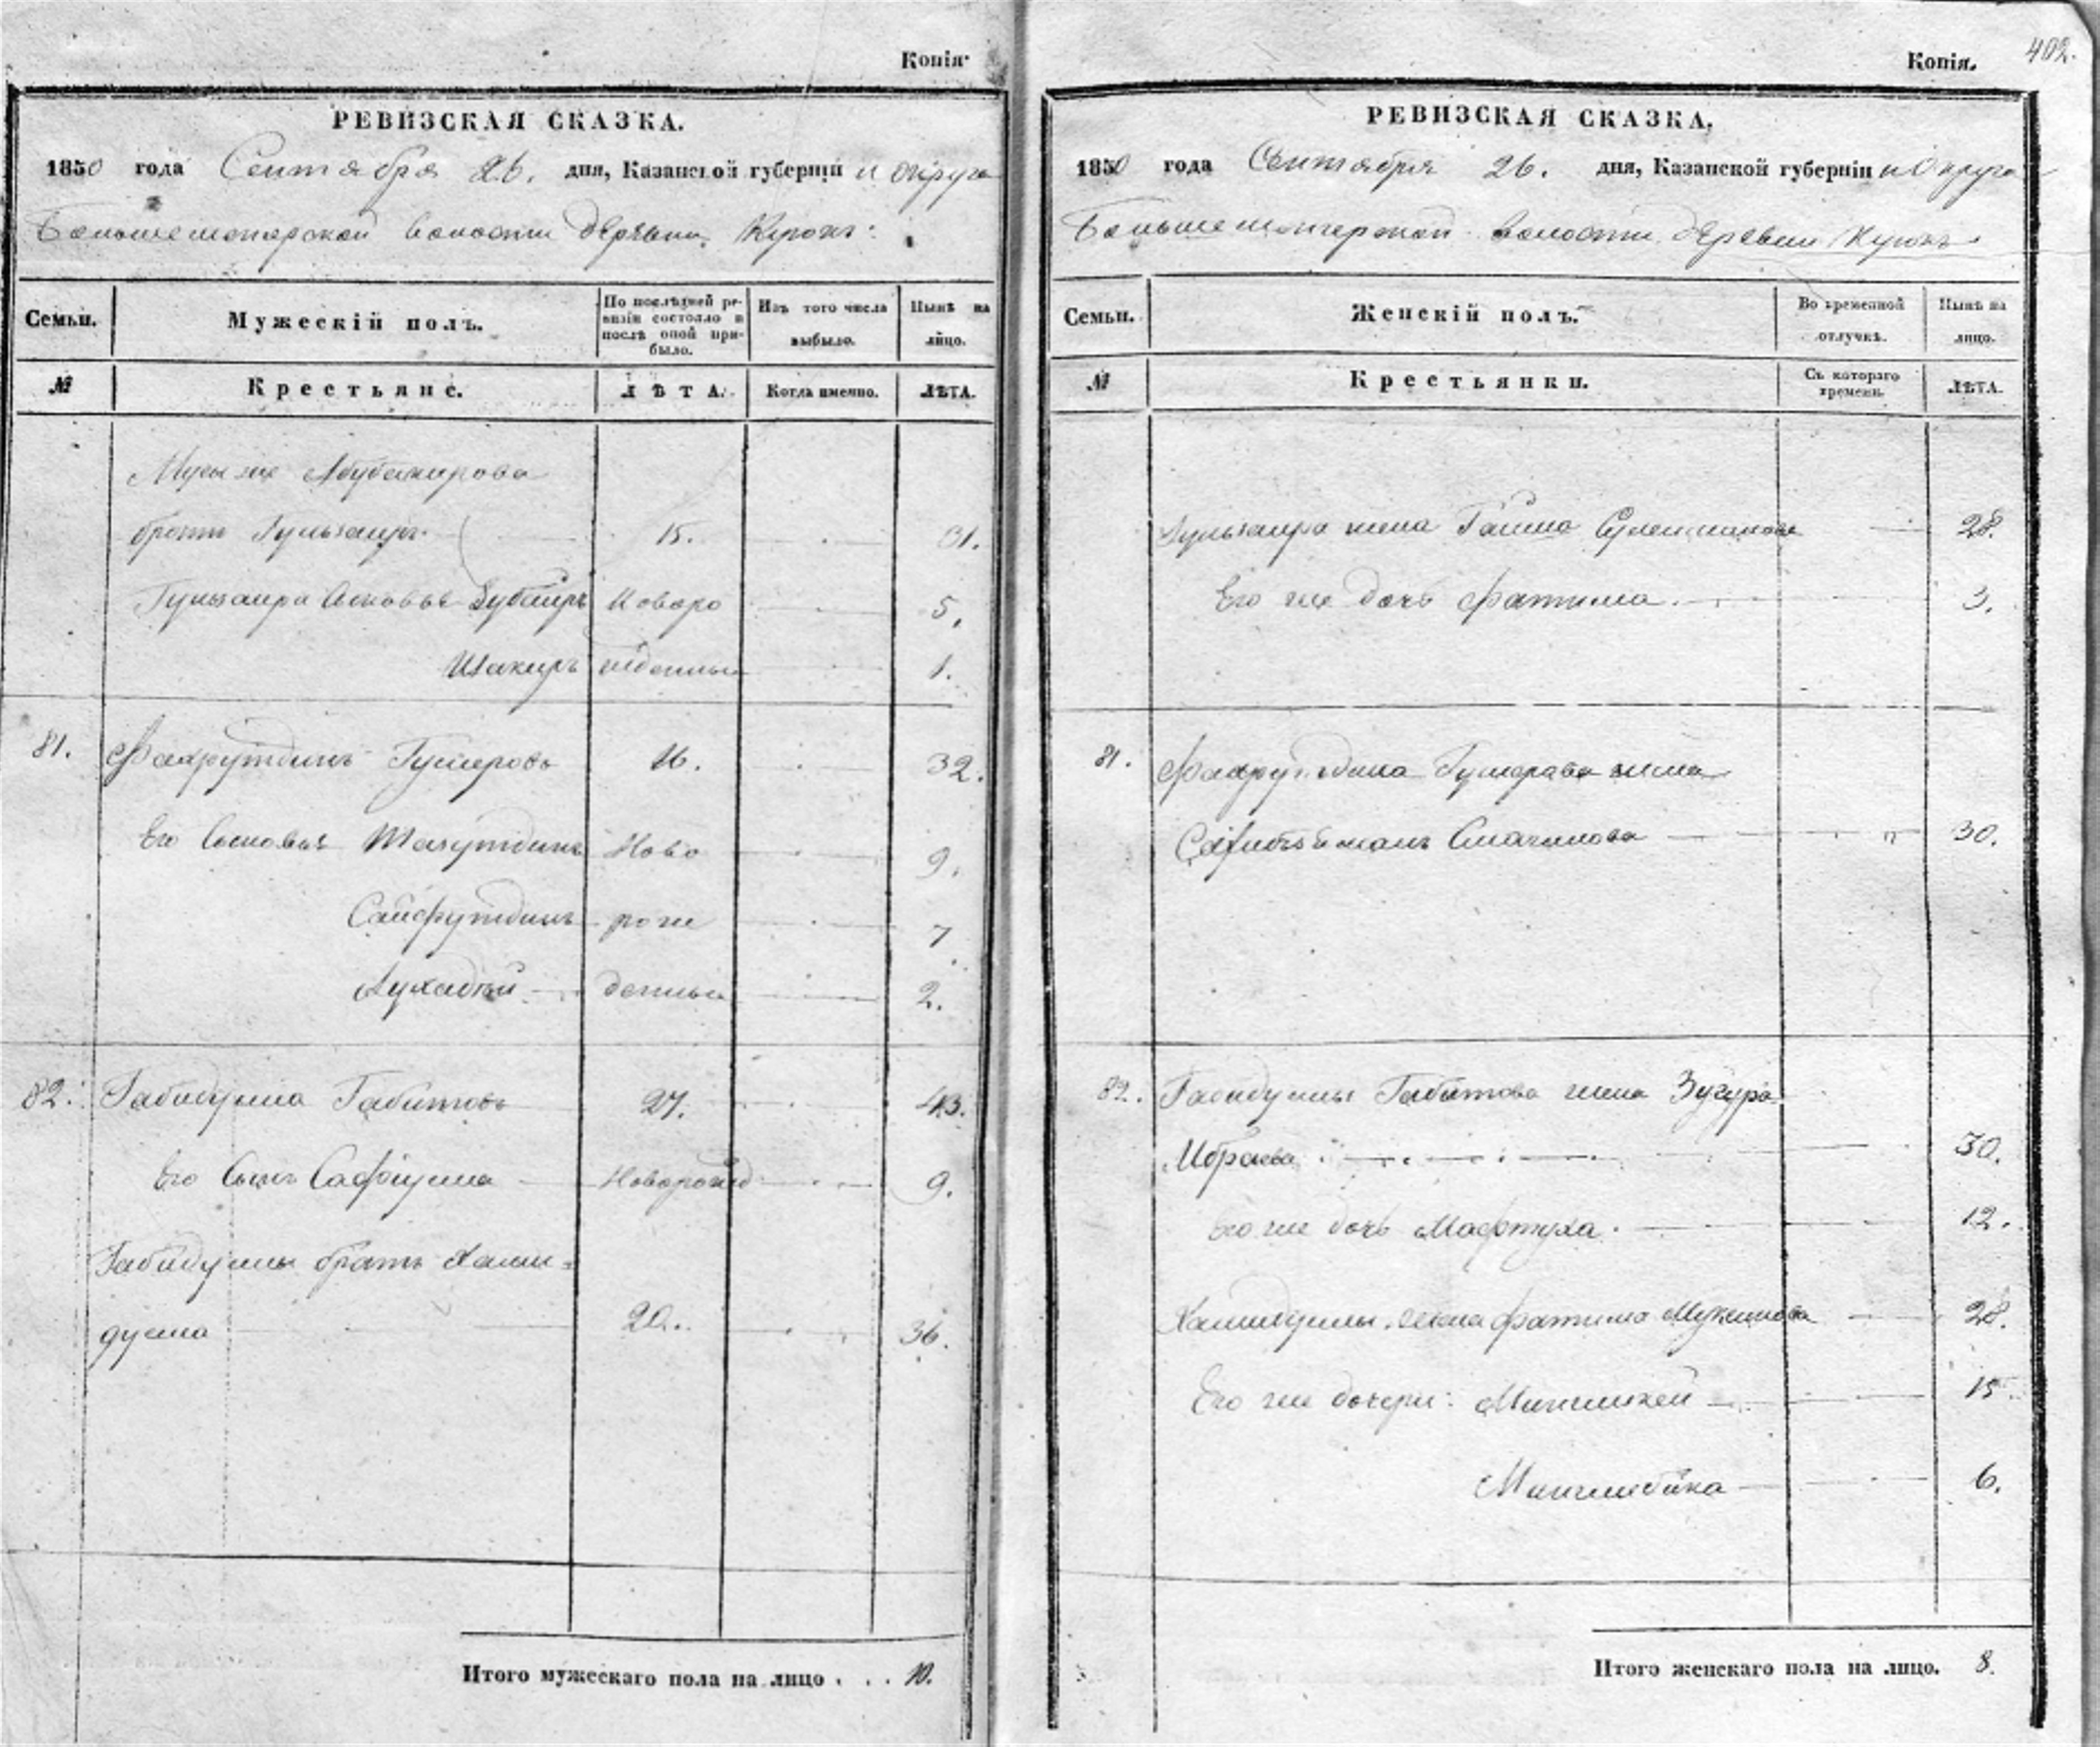 Копія
РЕВИЗСКАЯ СКАЗКА.
1850 года Сентября 26. дня, Казанской губерніи и округа
волости деревни Куюкъ:
Семьи.
Мужескій полъ.
По послѣдней ре-
визіи состояло и
послѣ оной при-
было.
Изъ того числа
выбыло.
Нынѣ на
лицо.
№
Крестьяне.
ЛѢТА.
Когда именно.
ЛѢТА.
же Абубакирова
братъ 15. 31.
сыновья Зубаиръ Новоро 5.
Шакиръ жденные 1.
81. Фахрутдинъ Гумеровъ 16. 32.
Его сыновья Ново 9.
Сайфутдинъ рож 7
денные 2.
82. Габидулла Габитовъ 27. 43.
Его сынъ Сафіулла Новорожд 9.
Габидуллы братъ Хами-
дулла 20. 36.
Итого мужескаго пола на лицо . . . 10.
Копія.
402.
РЕВИЗСКАЯ СКАЗКА.
1850 года Сентября 26. дня, Казанской губерніи и Округа
волости деревни Куюкъ
Семьи.
Женскій полъ.
Во временной
отлучкѣ.
Нынѣ на
лицо.
№
Крестьянки.
Съ котораго
времени.
ЛѢТА.
жена 28.
Его же дочь Фатима. 3.
81. Фахрутдина Гумерова жена
30.
82. Габидуллы Габитова жена Зугура
Ибраева 30.
Его же дочь Мафтуха. 12.
Хамидуллы жена Фатима 28.
Его же дочери: 15.
6.
Итого женскаго пола на лицо. 8.